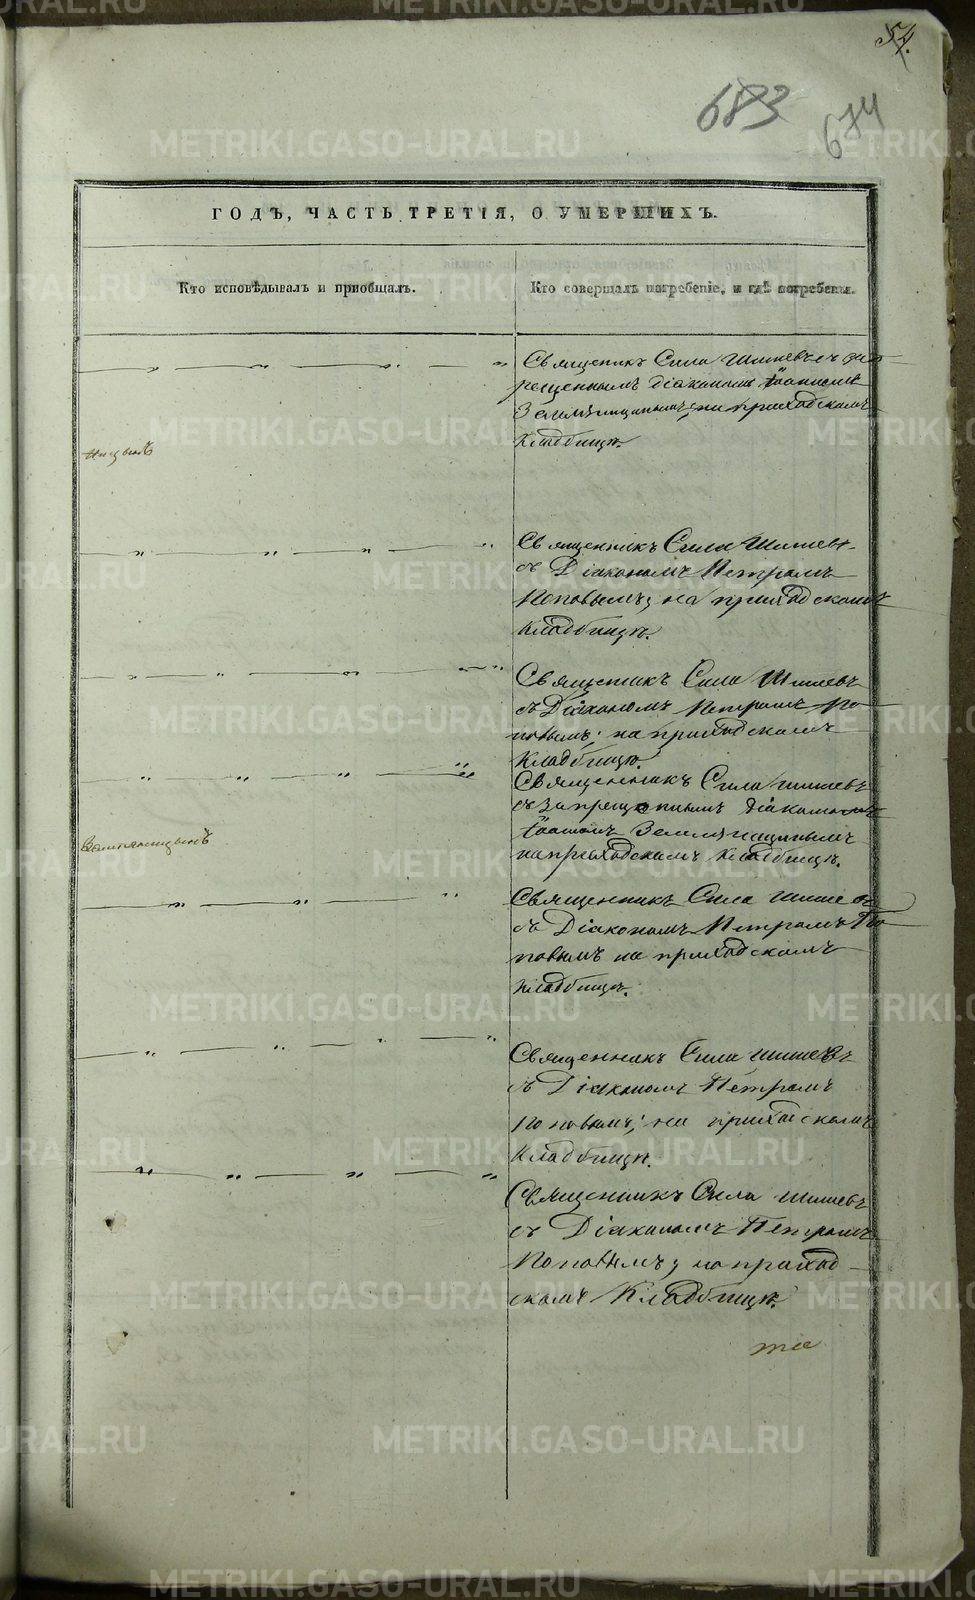 54.
683
674
ГОДЪ, ЧАСТЬ ТРЕТІЯ, О УМЕРШИХЪ.
Кто исповѣдывалъ и пріобщалъ.
Кто совершалъ погребеніе, и гдѣ погребены.
Священникъ Сила Шишевъ съ
рещеннымъ діакономъ Іоанномъ
Земляницынымъ; на приходскомъ
Кладбищѣ.
Священникъ Сила Шишевъ
съ Діакономъ Петромъ
Поповымъ; на приходскомъ
Кладбищѣ.
Священникъ Сила Шишевъ
съ Діакономъ Петромъ По
повымъ; на приходскомъ
Кладбищѣ.
Священникъ Сила Шишевъ
съ запрещеннымъ діакономъ
Іоанномъ Земляницынымъ
на приходскомъ Кладбищѣ.
Священникъ Сила Шишевъ
съ Діакономъ Петромъ По
повымъ на приходскомъ
Кладбищѣ.
Священникъ Сила Шишевъ
съ Діакономъ Петромъ
Поповымъ; на приходскомъ
Кладбищѣ.
Священникъ Сила Шишевъ
съ Діакономъ Петромъ
Поповымъ; на приход
скомъ Кладбищѣ.
METRIKI.GASO-URAL.RU